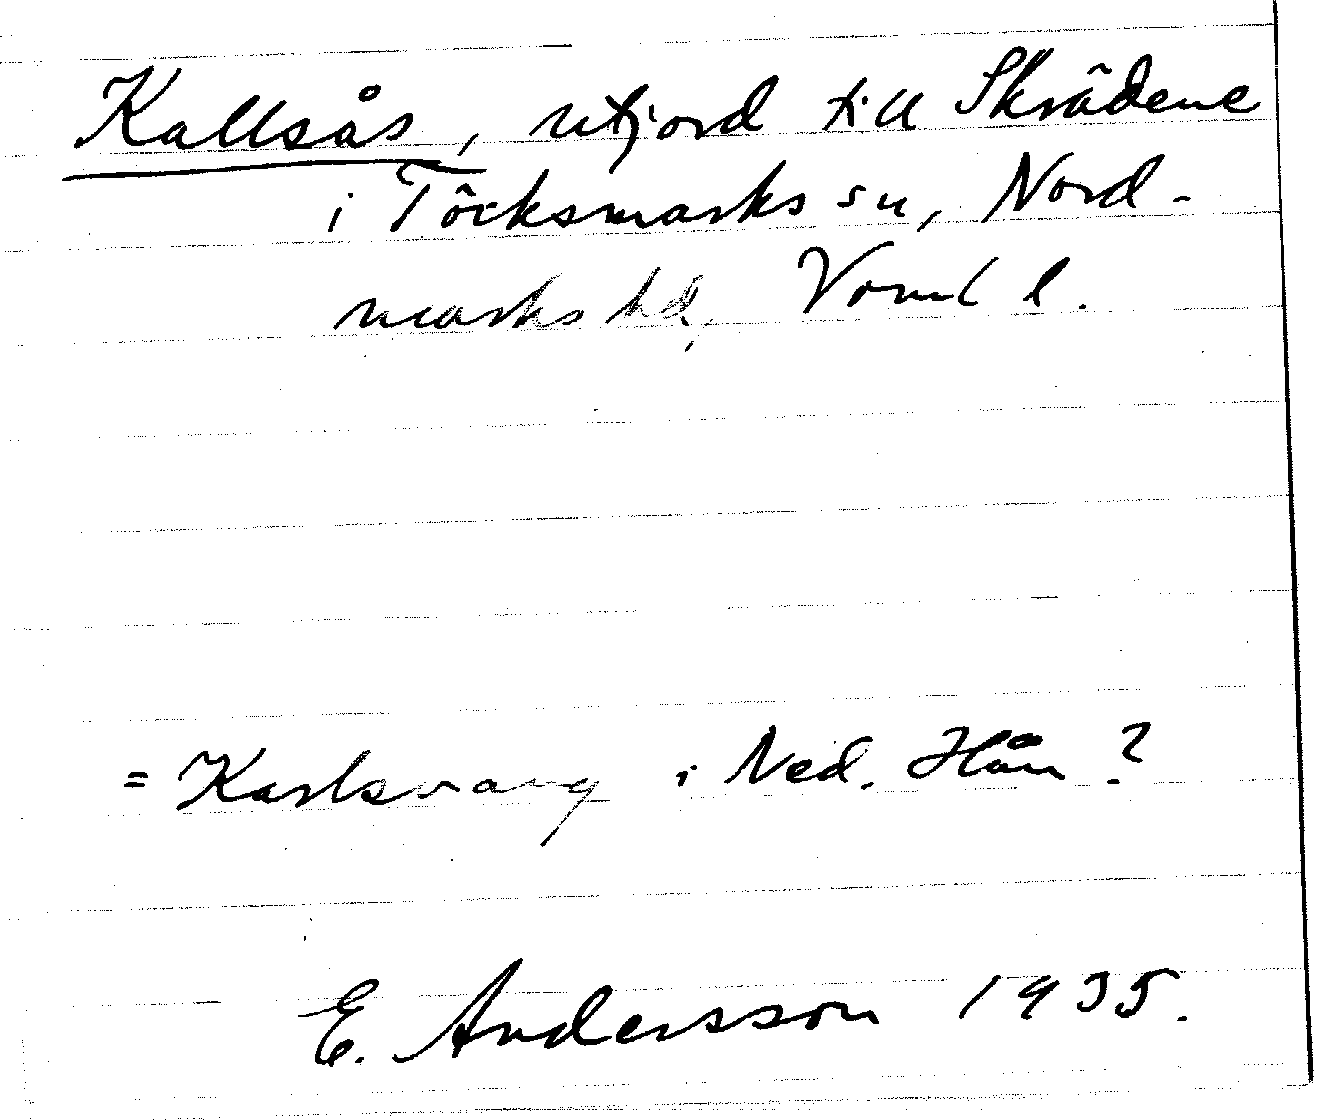 Kallsås, utjord till Skrädene
i Töcksmarks sn, Nord-
marks hd, Värml l.
= Karlsvang i Ned. Hån?
E. Andersson 1935.